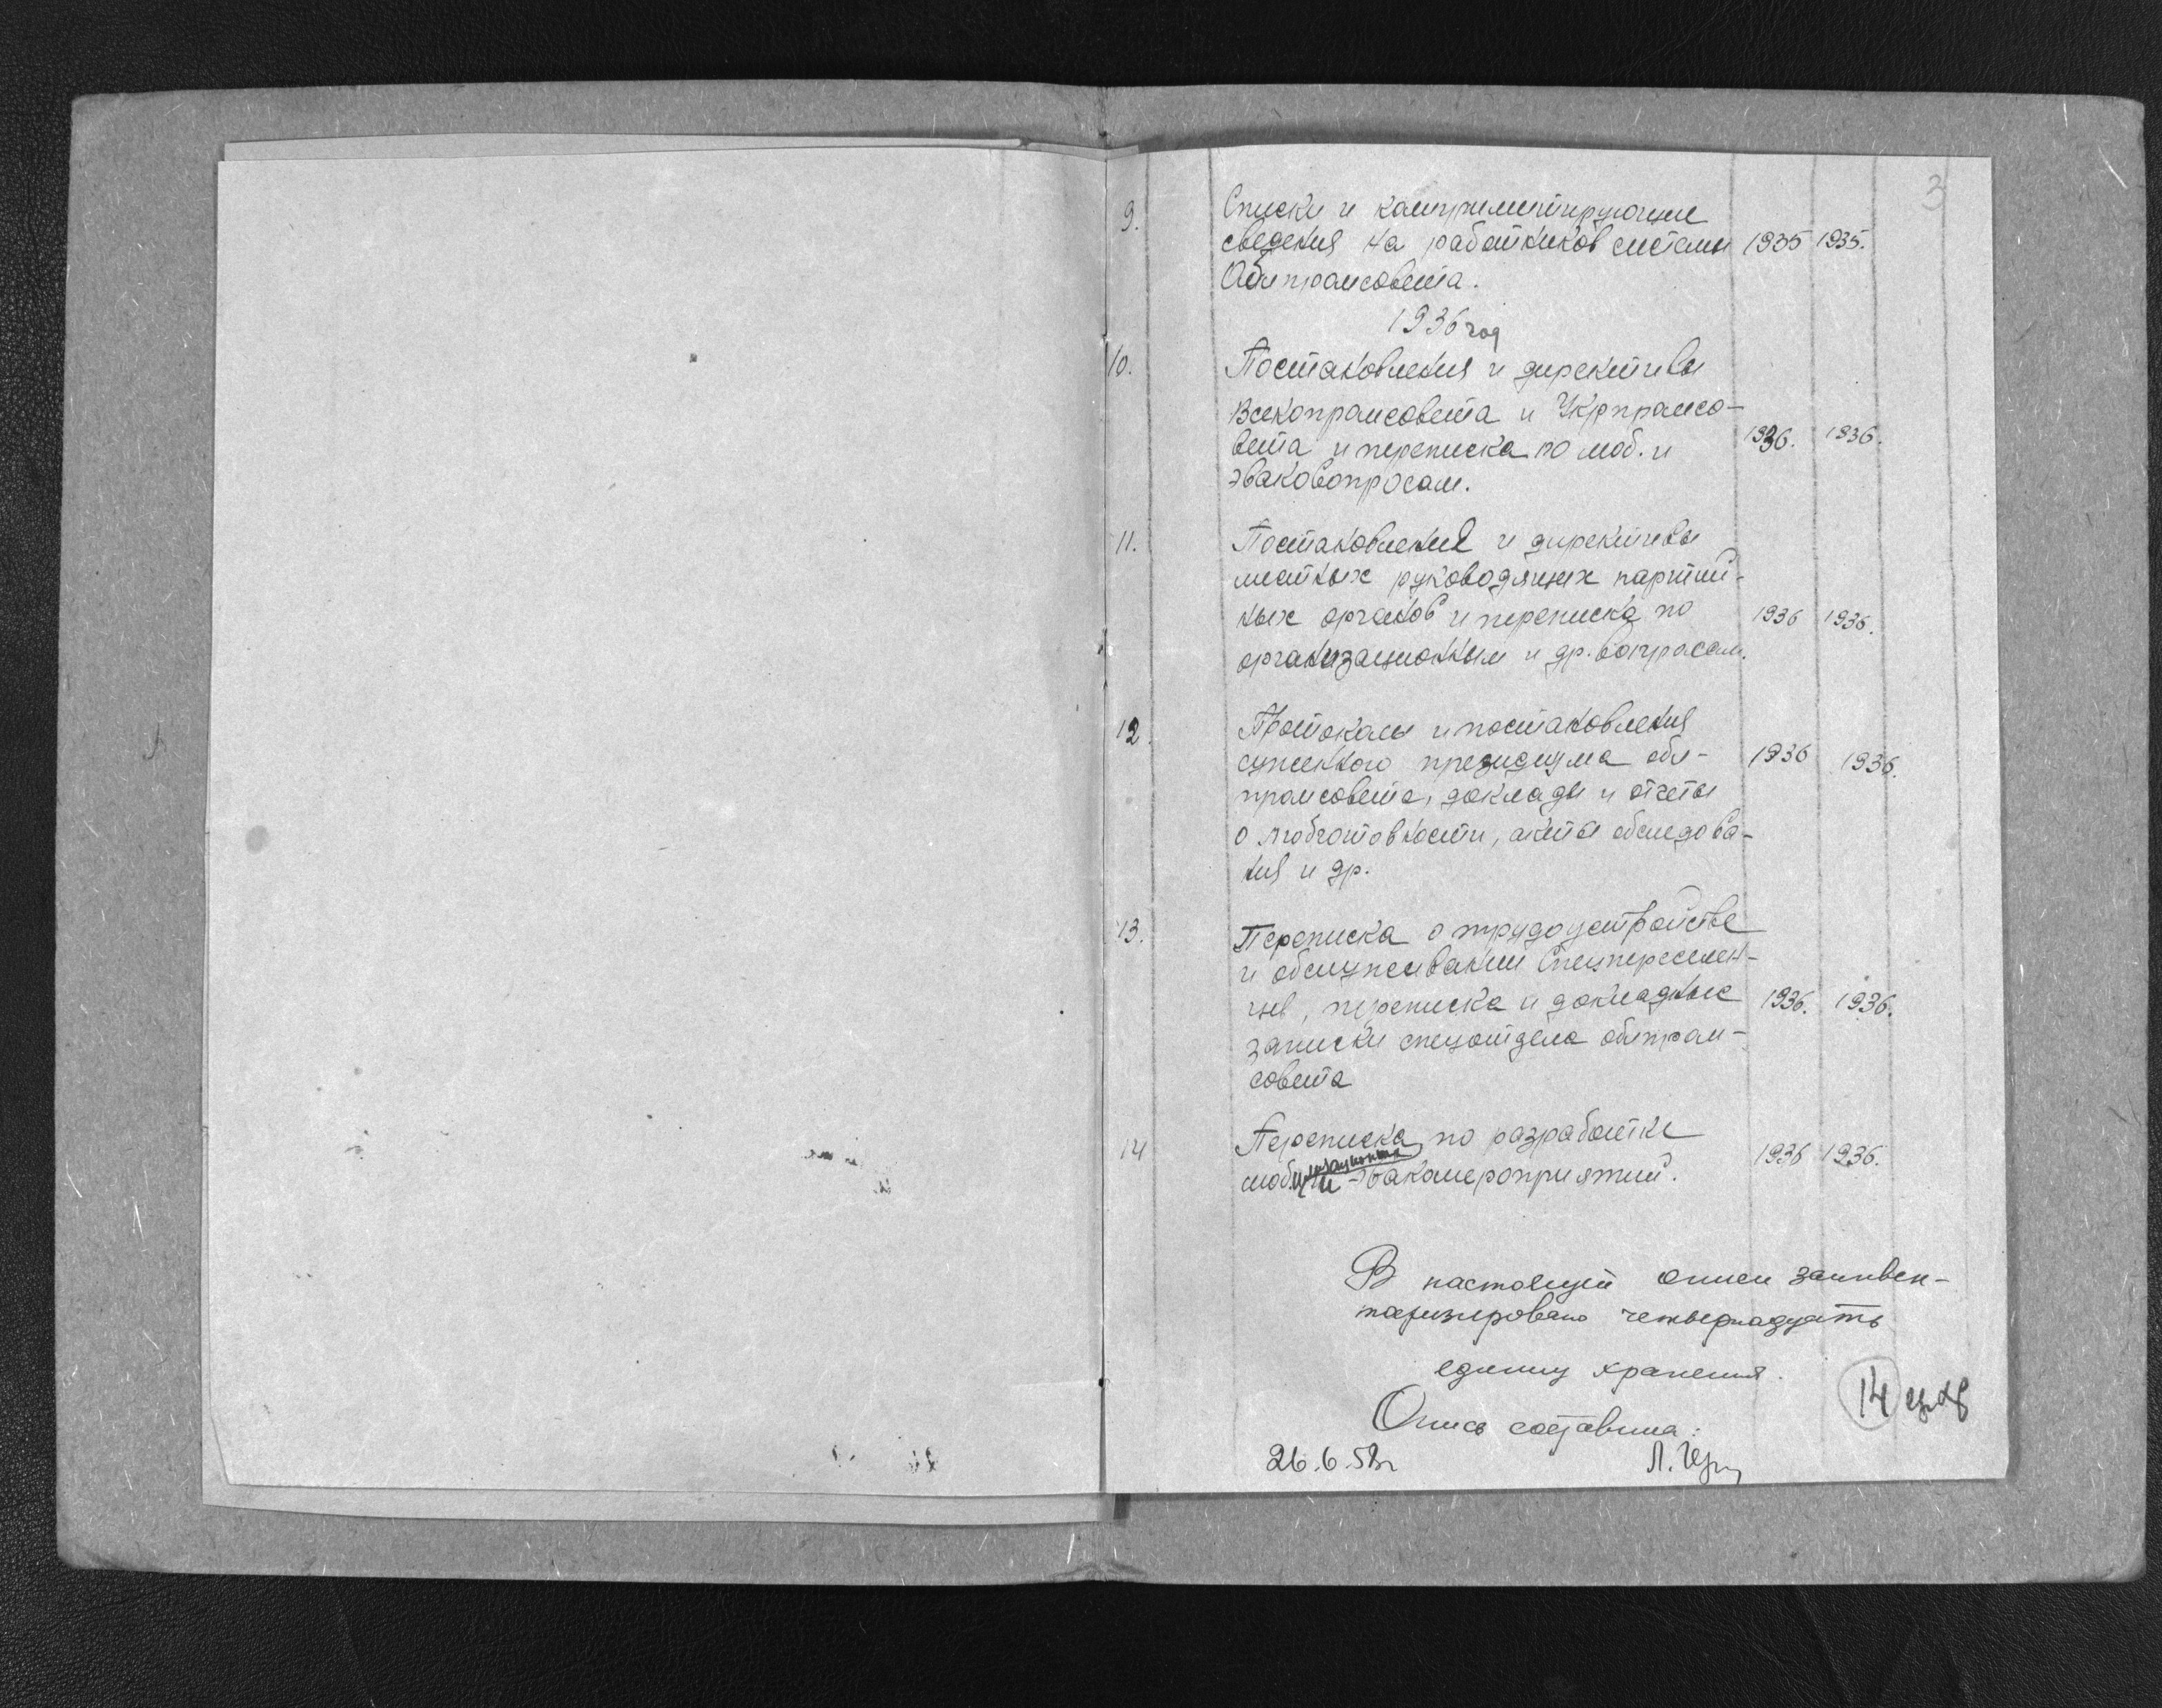 3
9. Списки и компрометирующие
сведения на работников системы 1935 1935.
Облпромсовета.
1936 год
10. Постановления и директивы
Всекопромсовета и Укрпромсо-
вета и переписка по моб. и 1936. 1936.
эваковопросам.
11. Постановления и директивы
местных руководящих партий-
ных органов и переписка по 1936 1936.
организационным и др. вопросам.
12. Протоколы и постановления
суженного президиума обл- 1936 1936.
промсовета, доклады и отчеты
о мобготовности, акты обследова-
ния и др.
13. Переписка о трудоустройстве
и обслуживании Спецпереселен-
цев, переписка и докладные 1936. 1936.
записки спецотдела облпром-
совета
14 Переписка по разработке
моб. и эвакомероприятий. 1936 1936.
В настоящей описи заинвен-
таризировано четвернадцать
единиц хранения.
14 ед хр
Опись составила:
26.6.58г Л.